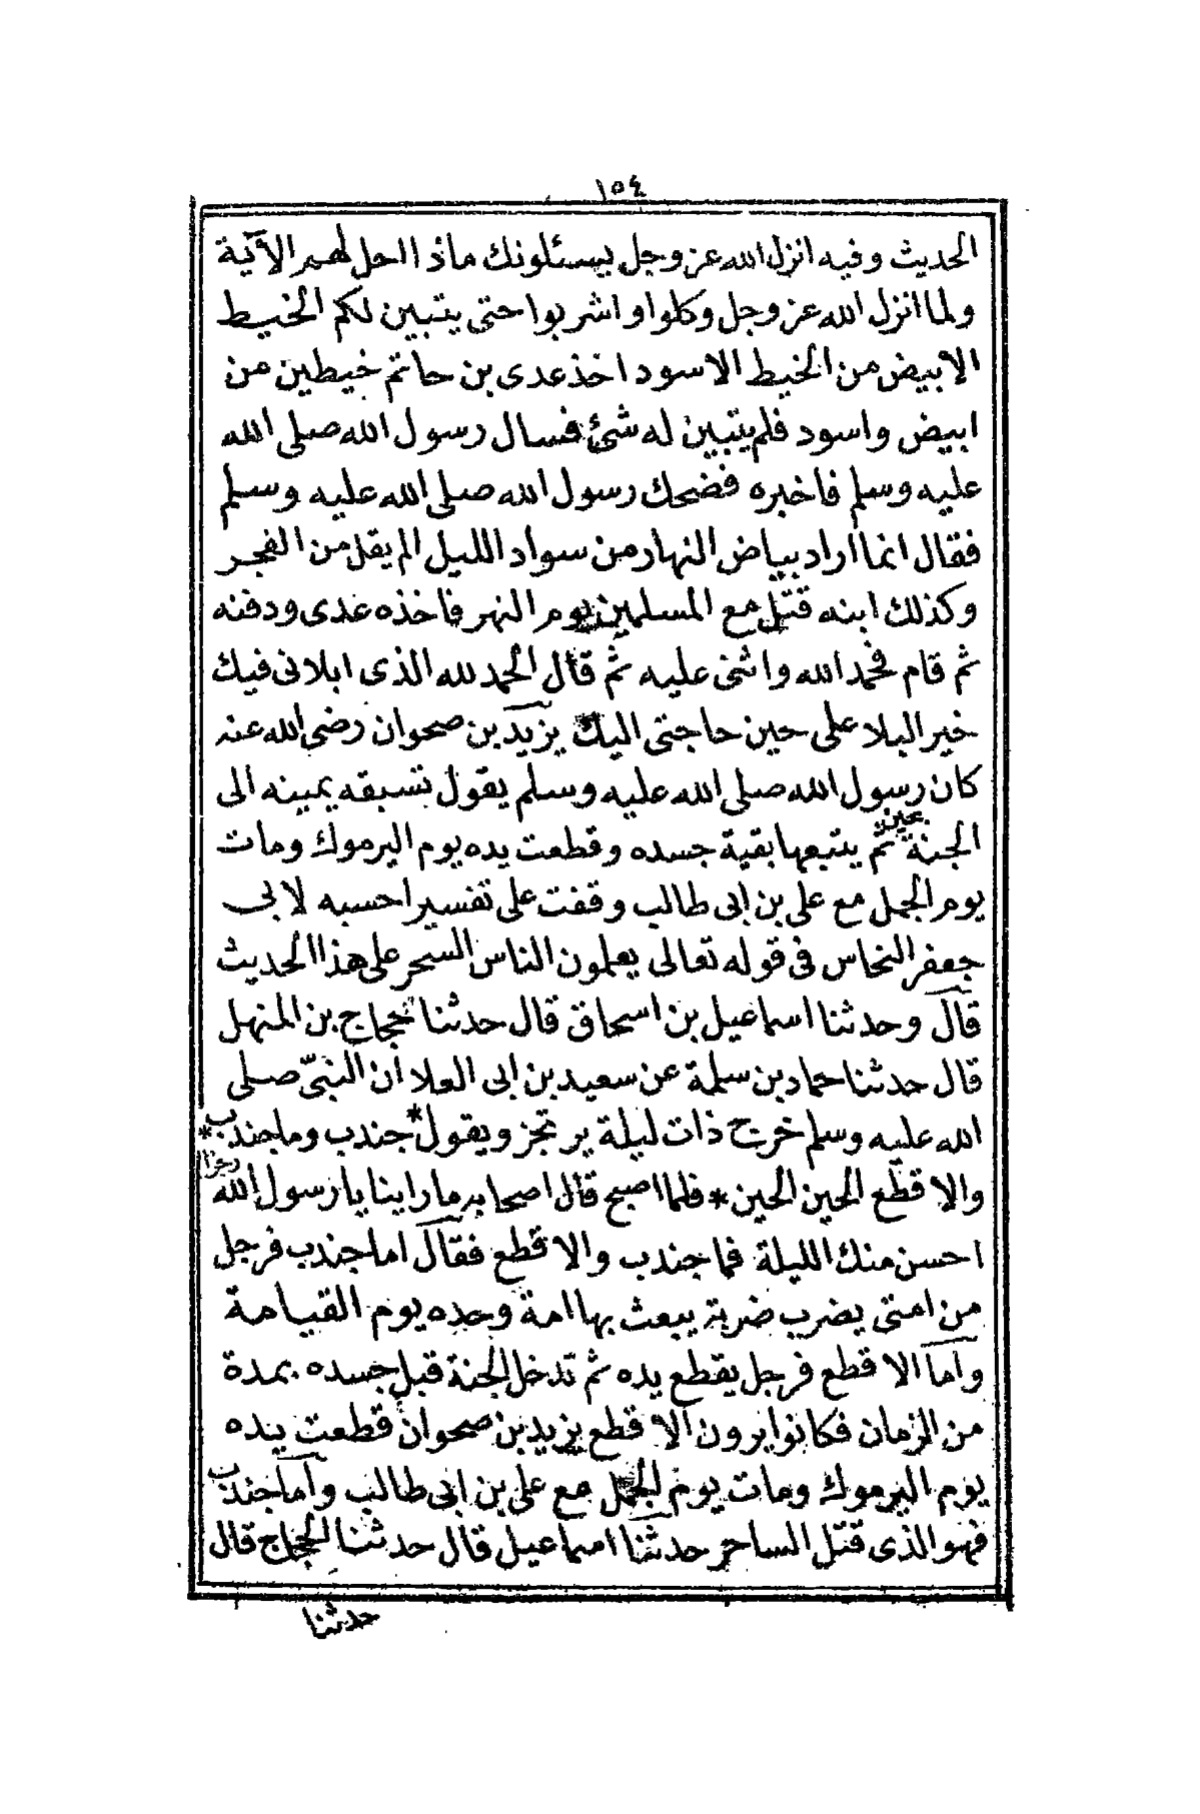 ١٥٤
الحديث وفيه انزل الله عز وجل يسئلونك ماذا احل لهم الآية
ولما انزل الله عز وجل وكلوا واشربوا حتى يتبين لكم الخيط
الابيض من الخيط الاسود اخذ عدى بن حاتم خيطين من
ابيض واسود فلم يتبين له شئ فسال رسول الله صلى الله
عليه وسلم فاخبره فضحك رسول الله صلى الله عليه وسلم
فقال انما اراد بياض النهار من سواد الليل الم يقل من الفجر
وكذلك ابنه قتل مع المسلمين يوم النهر فاخذه عدى ودفنه
ثم قام فحمد الله واثنى عليه ثم قال الحمد لله الذى ابلانى فيك
خير البلا على حين حاجتى اليك يزيد بن صحوان رضى الله عنه
كان رسول الله صلى الله عليه وسلم يقول تسبقه يمينه الى
الجنة بحين ثم يتبعها بقية جسده وقطعت يده يوم اليرموك ومات
يوم الجمل مع على بن ابى طالب وقفت على تفسير احسبه لابى
جعفر النحاس فى قوله تعالى يعلمون الناس السحر على هذا الحديث
قال وحدثنا اسماعيل بن اسحاق قال حدثنا حجاج بن المنهل
قال حدثنا حماد بن سلمة عن سعيد بن ابى العلا ان النبىّ صلى
الله عليه وسلم خرج ذات ليلة يرتجز ويقول * جندب وما جندب *
رجزا
والاقطع الحين الحين * فلما اصبح قال اصحابه ما راينا يا رسول الله
احسن منك الليلة فما جندب والاقطع فقال اما جندب فرجل
من امتى يضرب ضربة يبعث بها امة وحده يوم القيامة
واما الاقطع فرجل يقطع يده ثم تدخل الجنة قبل جسده بمدة
من الزمان فكانوا يرون الاقطع يزيد بن صحوان قطعت يده
يوم اليرموك ومات يوم الجمل مع على بن ابى طالب واما جندب
فهو الذى قتل الساحر حدثنا اسماعيل قال حدثنا الحجاج قال
حدثنا